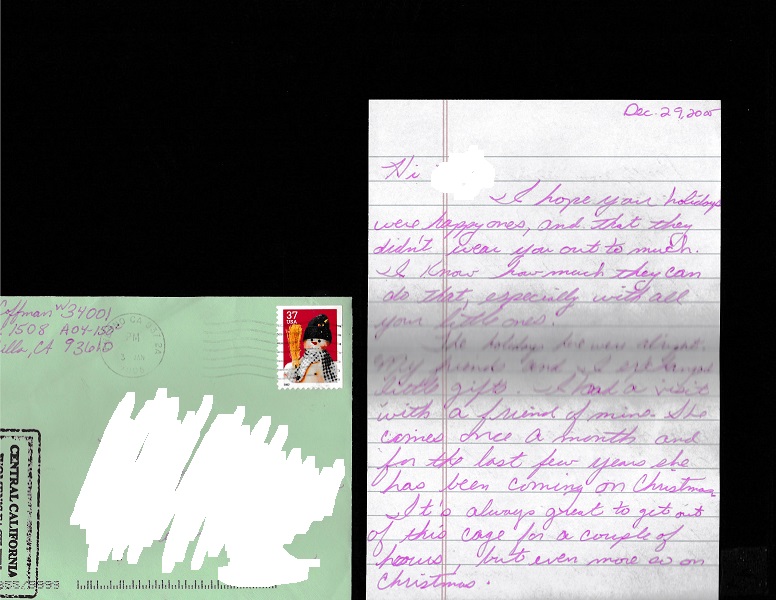 Dec. 29, 2005
Hi
I hope your holidays
were happy ones, and that they
didn't wear you out to much.
I know how much they can
do that, especially with all
your little ones.
The holidays here were alright.
My friends and I exchanged
little gifts. I had a visit
with a friend of mine. She
comes once a month and
for the last few years she
has been coming on Christmas
It's always great to get out
of this cage for a couple of
hours, but even more so on
Christmas.
offman W34001
1508 A04-15
illa, CA 93610
CA
PM
3 JAN
2006
37
USA
CENTRAL CALIFORNIA